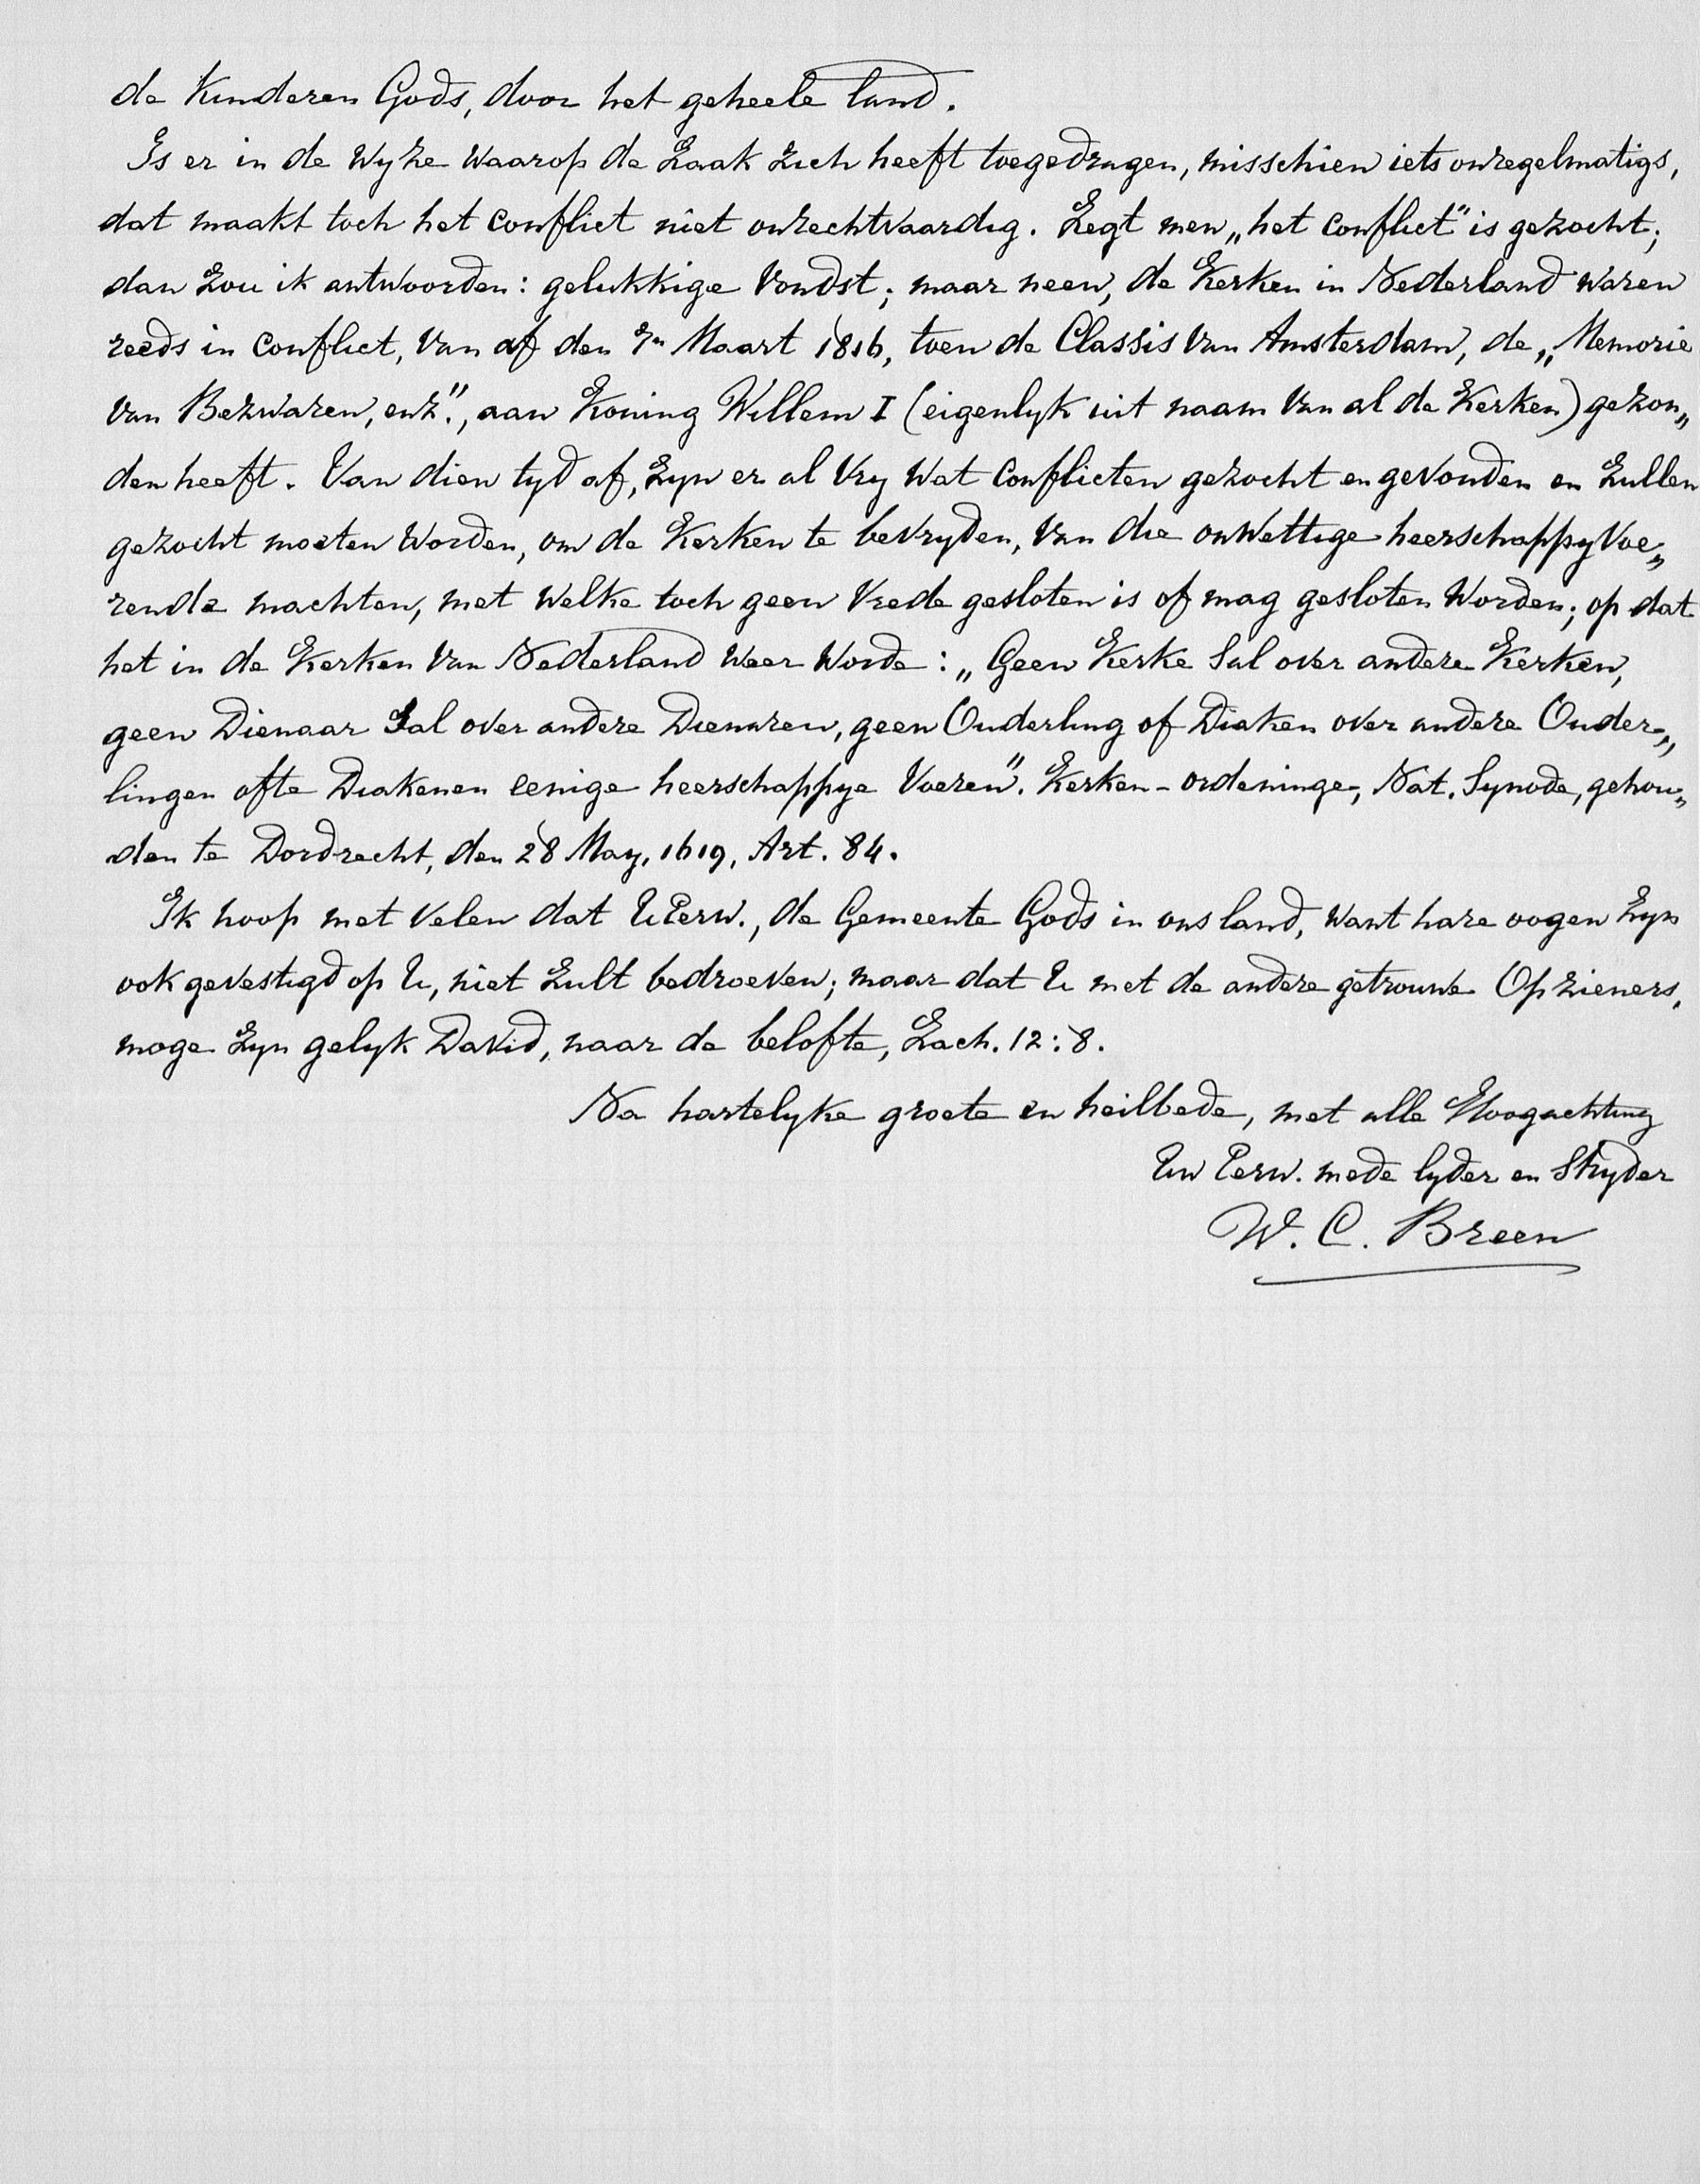 de Kinderen Gods, door het geheele land.
Is er in de Wyze waarop de Zaak Zich heeft toegedragen, misschien iets onregelmatigs,
dat maakt toch het conflict niet onrechtvaardig. Zegt men „het conflict" is gezocht;
dan Zou ik antwoorden: gelukkige Vondst; maar neen, de Kerken in Nederland waren
reeds in conflict, van af den 7en Maart 1816, toen de Classis van Amsterdam, de „Memorie
van Bezwaren, enz.", aan Koning Willem I (eigenlyk uit naam van al de Kerken) gezon„
den heeft. Van dien tyd af, Zyn er al Vry Wat conflicten gezocht en gevonden en Zullen
gezocht moeten Worden, om de Kerken te bevryden, van die onwettige heerschappy Voe„
rende machten, met Welke toch geen Vrede gesloten is of mag gesloten Worden; op dat
het in de Kerken van Nederland Weer Worde: „Geen Kerke Sal over andere Kerken,
geen Dienaar Sal over andere Dienaren, geen Ouderling of Diaken over andere Ouder„
lingen ofte Diakenen eenige heerschappye Voeren". Kerken-ordeninge, Nat. Synode, gehou„
den te Dordrecht, den 28 May, 1619, Art. 84.
Ik hoop met Velen dat UEerw., de Gemeente Gods in ons land, want hare oogen Zyn
ook gevestigd op U, niet Zult bedroeven; maar dat U met de andere getrouwe Opzieners,
moge Zyn gelyk David, naar de belofte, Zach. 12:8.
Na hartelyke groete en heilbede, met alle Hoogachting
Uw Eerw. mede lyder en Stryder
W. C. Breen